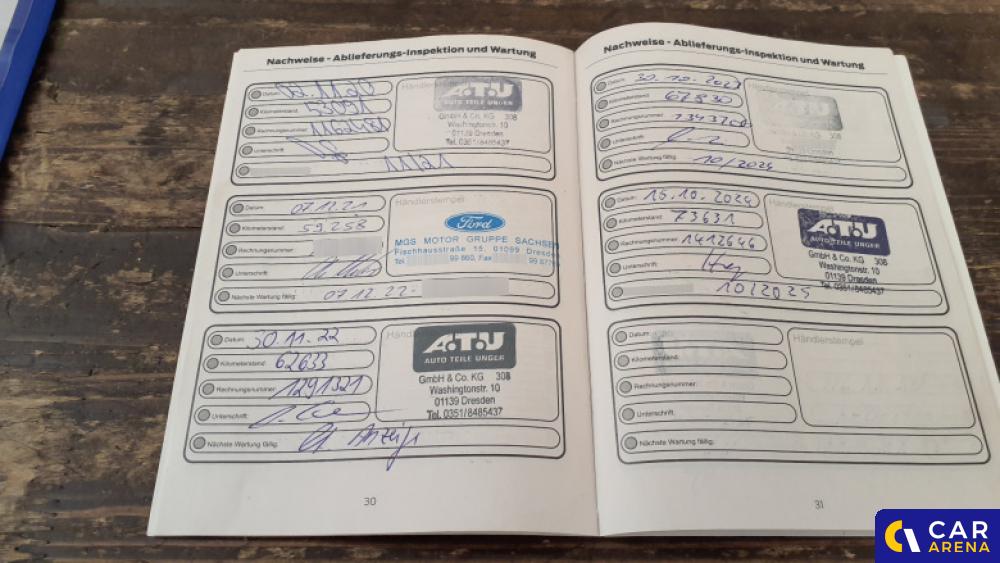 Nachweise - Ablieferungs-Inspektion und Wartung
Datum: 02.11.20
Kilometerstand: 53091
Rechnungsnummer:
Unterschrift:
11/21
Händlerstempel
A.T.U
AUTO TEILE UNGER
GmbH & Co. KG 308
Washingtonstr. 10
01139 Dresden
Tel. 0351/8485437
Datum: 07.12.21
Kilometerstand: 59.258
Rechnungsnummer:
Unterschrift:
Nächste Wartung fällig: 07.12.22-
Händlerstempel
Ford
MGS MOTOR GRUPPE SACHSEN
Fischhausstraße 15, 01099 Dresden
Tel 99 860, Fax 99 87
Datum: 30.11.22
Kilometerstand: 62633
Rechnungsnummer: 1291321
Unterschrift:
Nächste Wartung fällig: Anzeige
A.T.U
AUTO TEILE UNGER
GmbH & Co. KG 308
Washingtonstr. 10
01139 Dresden
Tel. 0351/8485437
30
Nachweise - Ablieferungs-Inspektion und Wartung
Datum: 30.10.2023
Kilometerstand: 67830
Rechnungsnummer:
Unterschrift:
Nächste Wartung fällig: 10/2024
Datum: 15.10.2024
Kilometerstand: 73631
Rechnungsnummer: 1412646
Unterschrift:
10/2025
Händlerstempel
A.T.U
AUTO TEILE UNGER
GmbH & Co. KG 308
Washingtonstr. 10
01139 Dresden
Tel. 0351/8485437
Datum:
Kilometerstand:
Rechnungsnummer:
Unterschrift:
Nächste Wartung fällig:
Händlerstempel
31
CAR
ARENA